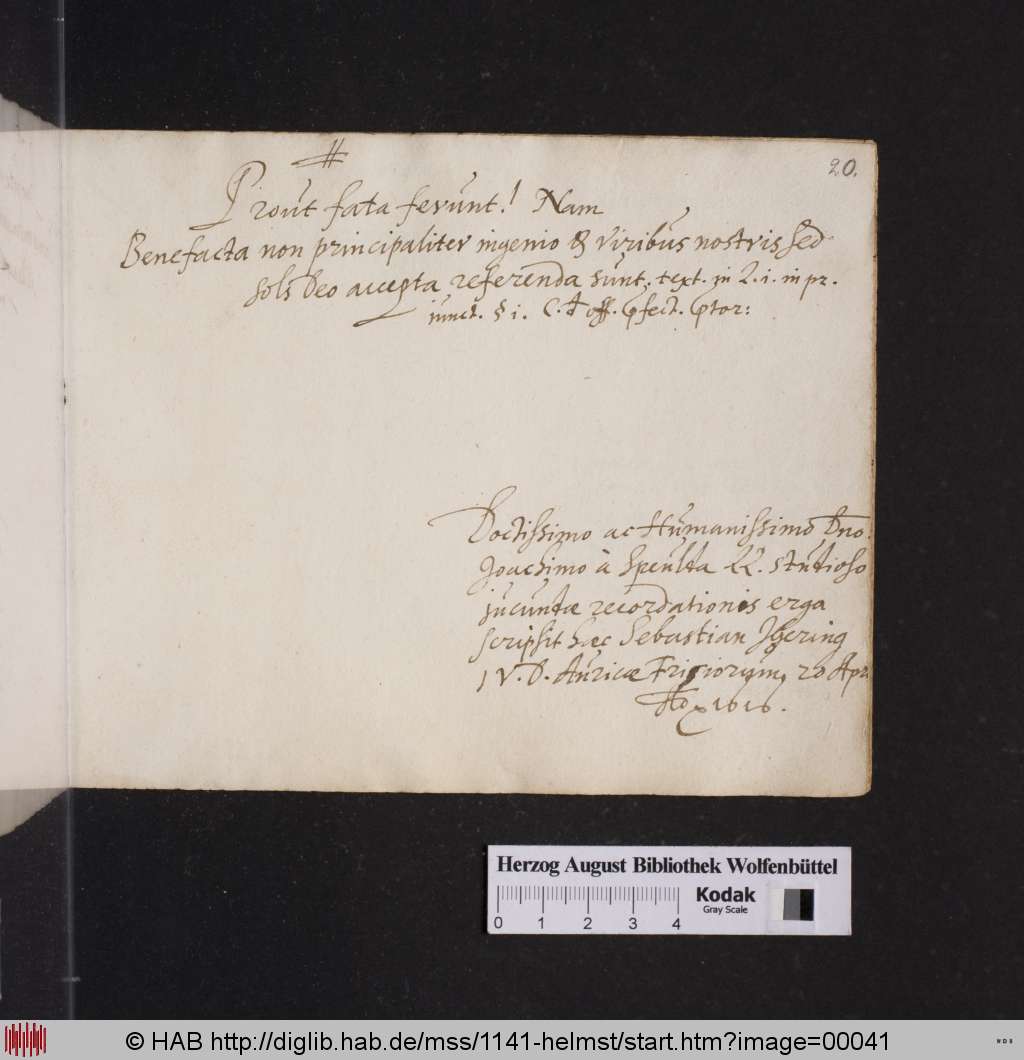 20.
Prout fata ferunt! Nam
Benefacta non principaliter ingenio & viribus nostris sed
soli Deo accepta referenda sunt. text. in L. i. in pr.
iunct. § i. C. off. pfect. ptor:
Doctissimo ac Humanissimo Dno.
Joachimo à Speulda LL. studioso
jucundæ recordationis ergo
scripsit hæc Sebastian Jhering
I V. D. Auricæ Frisiorum, 20 Apr.
1616.
Herzog August Bibliothek Wolfenbüttel
Kodak
Gray Scale
0 1 2 3 4
© HAB http://diglib.hab.de/mss/1141-helmst/start.htm?image=00041